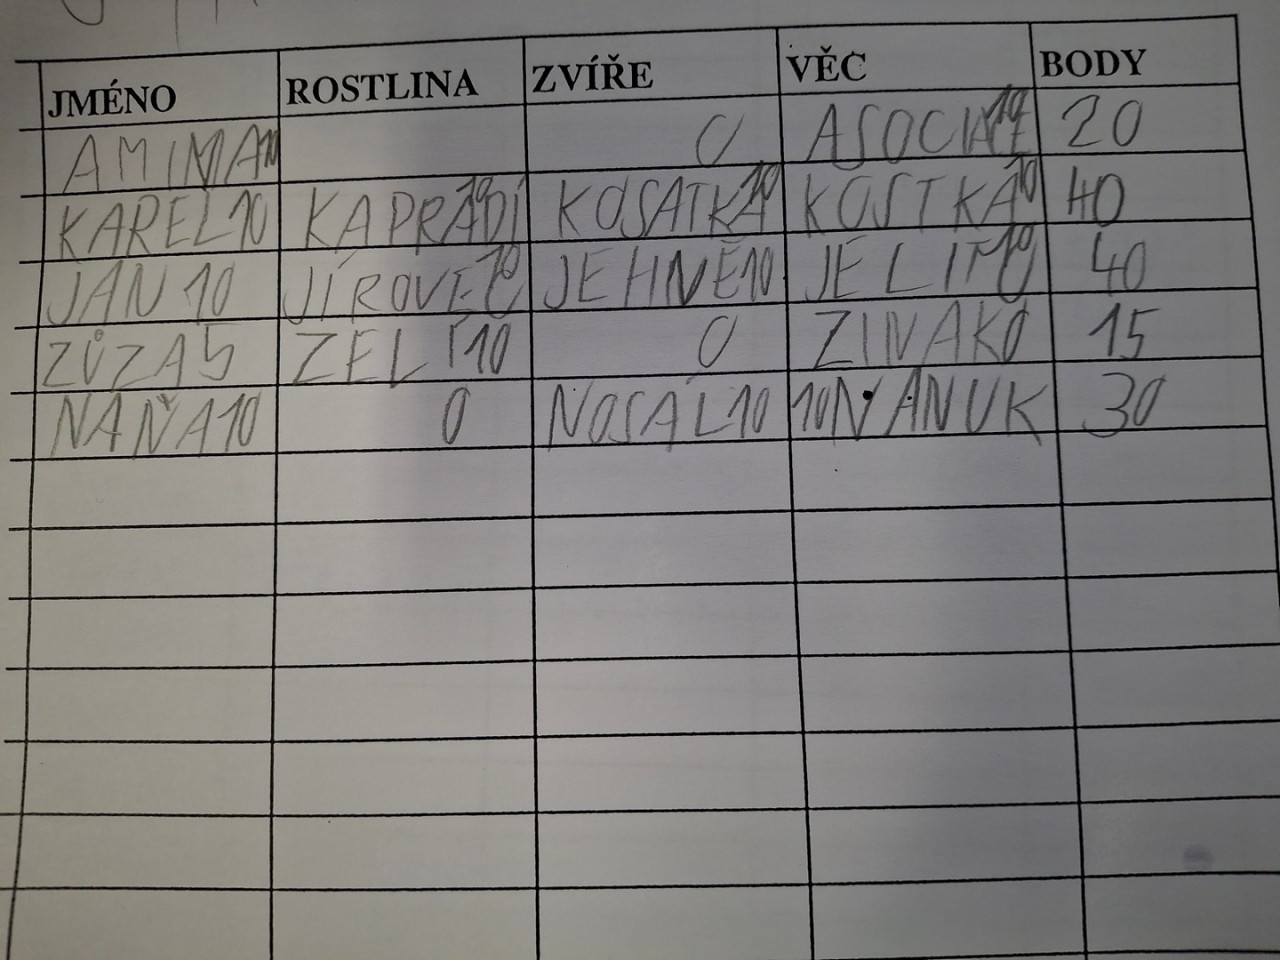 JMÉNO ROSTLINA ZVÍŘE VĚC BODY
AMINA 10 0 ASOCIACE 10 20
KAREL 10 KAPRADÍ 10 KOSATKA 10 KOSTKA 10 40
JAN 10 JÍROVEC 10 JEHNĚ 10 JELITO 10 40
ZŮZA 5 ZELÍ 10 0 ZIVAK 0 15
NÁŇA 10 0 NOSÁL 10 10 NANUK 30